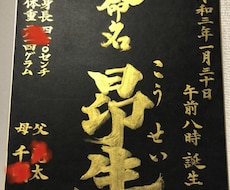 和三年一月三十日
午前八時誕生
こうせい
命名 昂生
身長 四 センチ
体重 四グラム
父 太
母 千